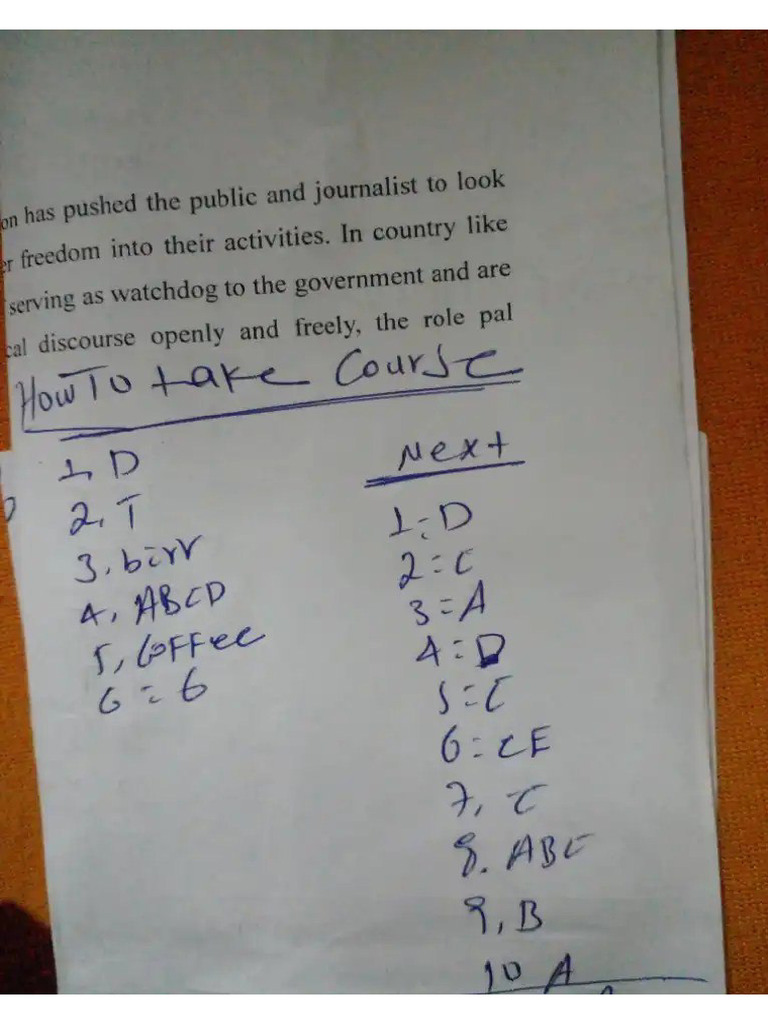 on has pushed the public and journalist to look
er freedom into their activities. In country like
serving as watchdog to the government and are
cal discourse openly and freely, the role pal
HOW TO take Course
1, D
2, T
3. birr
4, ABCD
5, Coffee
6 = 6
Next
1 = D
2 = C
3 = A
4 = D
5 = C
6 = CE
7, C
8. ABC
9, B
10 A